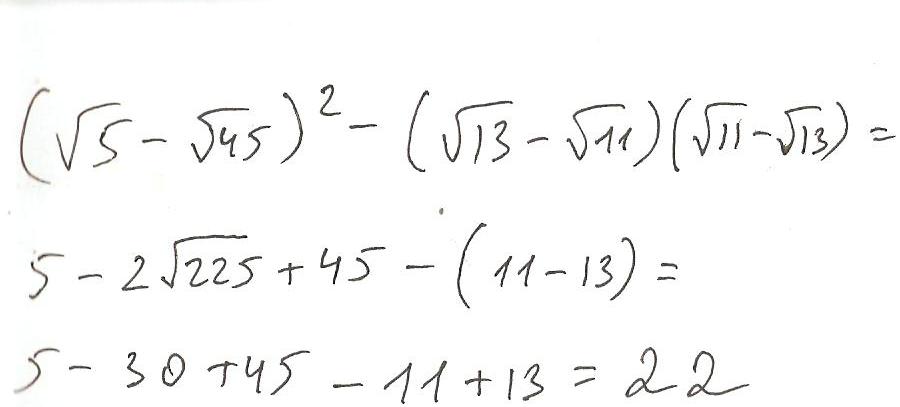 (√5 - √45)² - (√13 - √11)(√11 - √13) =
5 - 2√225 + 45 - (11 - 13) =
5 - 30 + 45 - 11 + 13 = 22